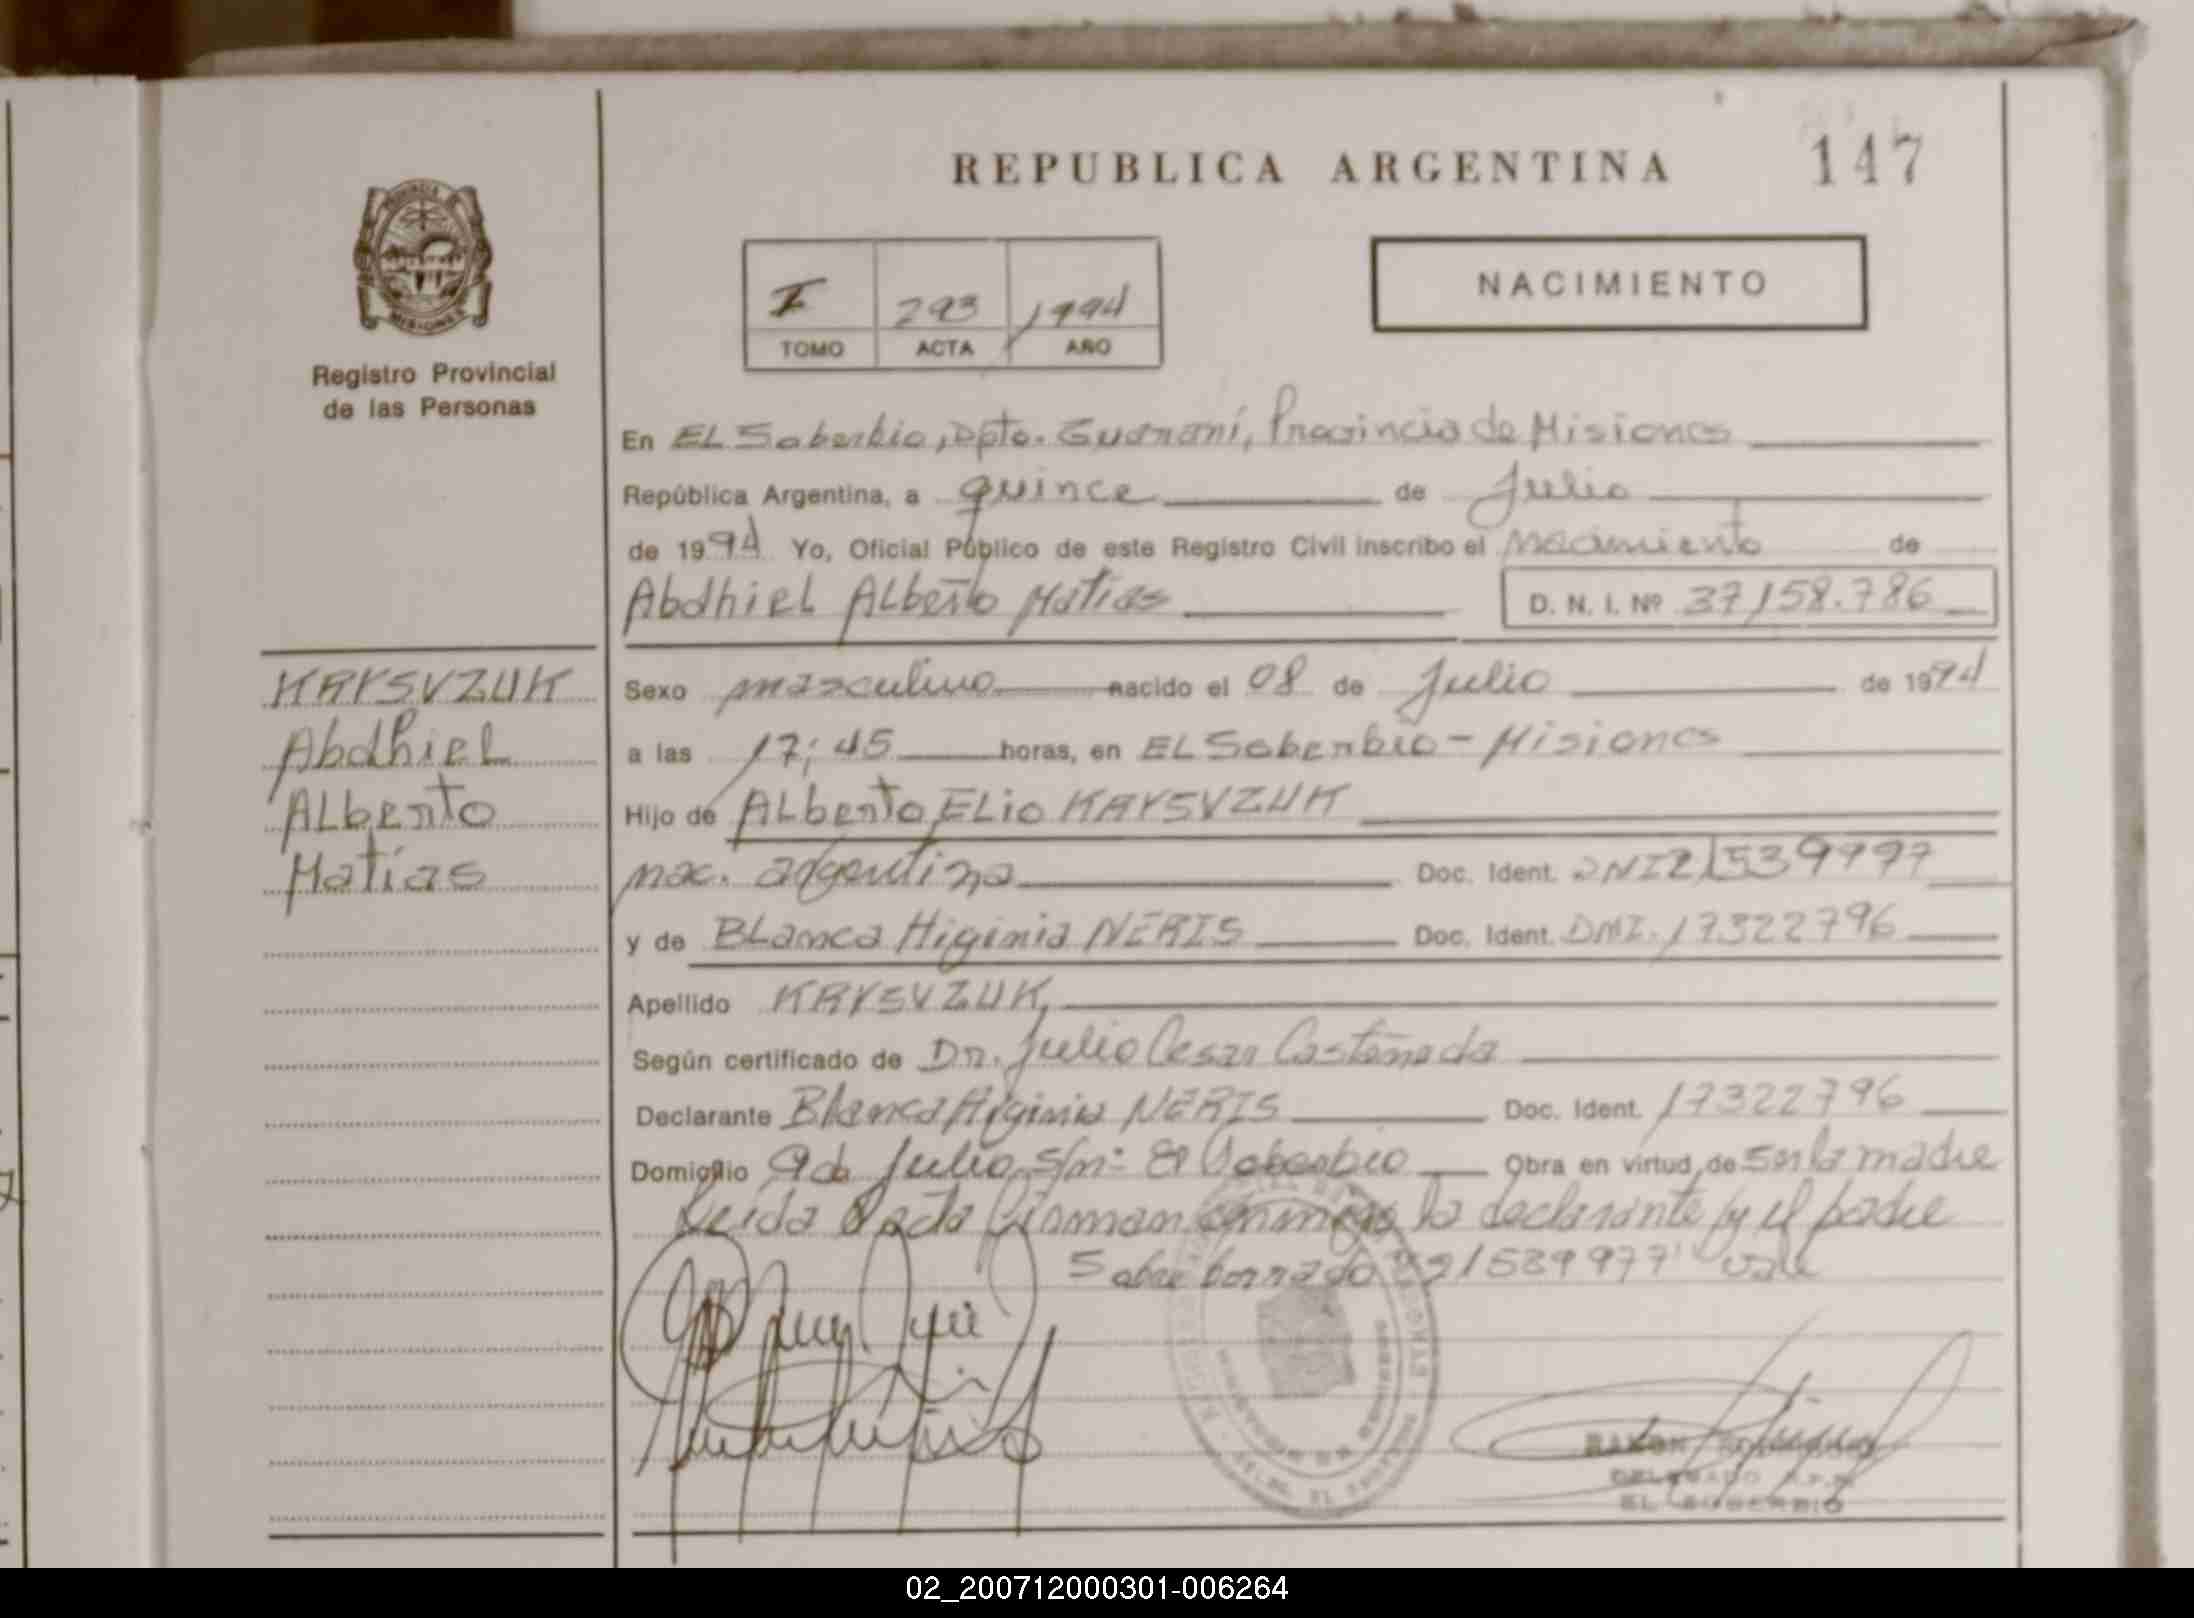 REPUBLICA ARGENTINA
147
NACIMIENTO
I 293 1994
TOMO ACTA AÑO
PROVINCIA
MISIONES
Registro Provincial
de las Personas
En EL Soberbio, Dpto. Guaraní, Provincia de Misiones
República Argentina, a quince de Julio
de 1994 Yo, Oficial Público de este Registro Civil inscribo el Nacimiento de
Abdhiel Alberto Matías D. N. I. Nº 37158.786
KRYSVZUK
Abdhiel
Alberto
Matías
Sexo masculino nacido el 08 de Julio de 1994
a las 17:45 horas, en EL Soberbio - Misiones
Hijo de Alberto Elio KRYSVZUK
nac. argentina Doc. Ident. DNI 21539977
y de Blanca Higinia NERIS Doc. Ident. DNI. 17322796
Apellido KRYSVZUK,
Según certificado de Dr. Julio Cesar Castañeda
Declarante Blanca Higinia NERIS Doc. Ident. 17322796
Domicilio 9 de Julio s/nº El Soberbio Obra en virtud de ser la madre
Leida Acta Firman conmigo la declarante y el padre
Sobre borrado "21539977" vale
RAMON
DELEGADO R.P.P.
EL SOBERBIO
02_200712000301-006264